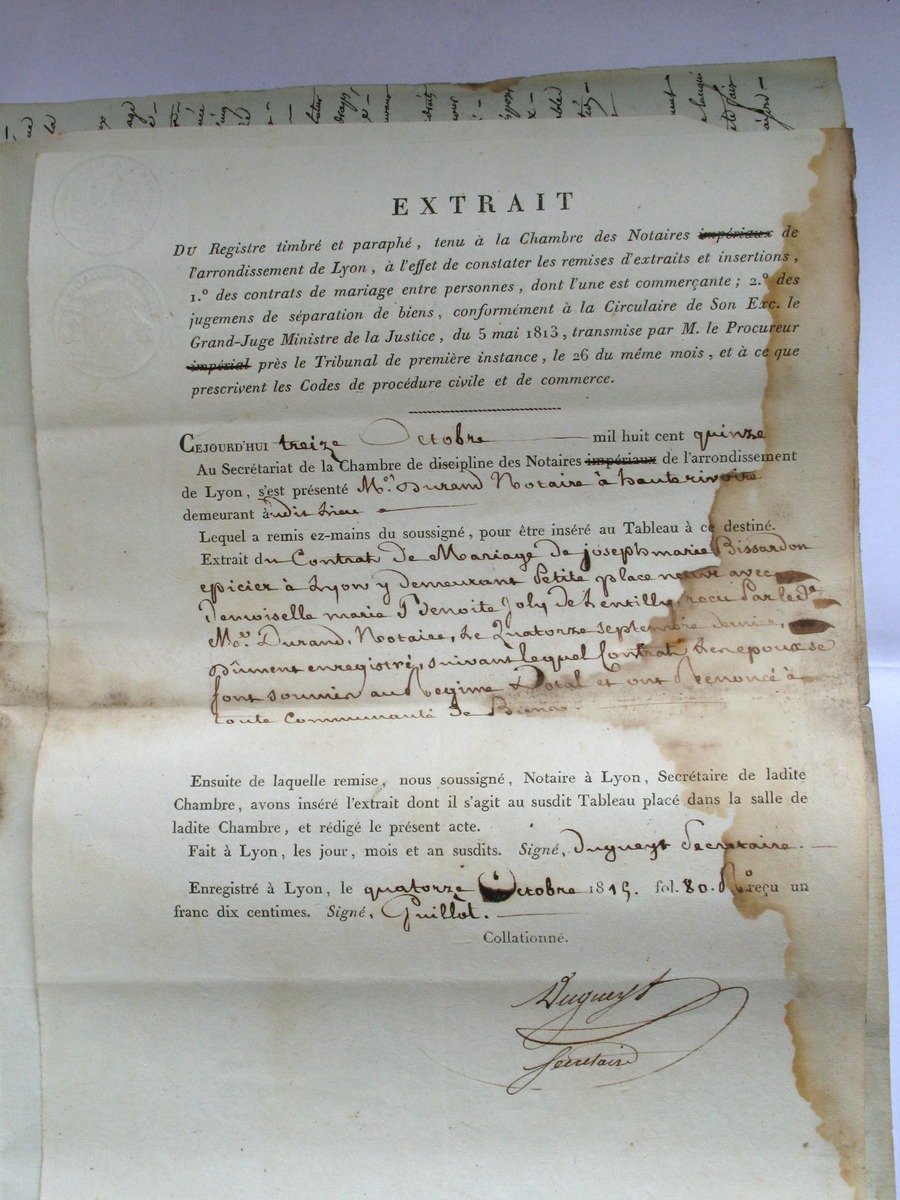 EXTRAIT
DU Registre timbré et paraphé, tenu à la Chambre des Notaires impériaux de
l'arrondissement de Lyon, à l'effet de constater les remises d'extraits et insertions,
1.º des contrats de mariage entre personnes, dont l'une est commerçante; 2.º des
jugemens de séparation de biens, conformément à la Circulaire de Son Exc. le
Grand-Juge Ministre de la Justice, du 5 mai 1813, transmise par M. le Procureur
impérial près le Tribunal de première instance, le 26 du même mois, et à ce que
prescrivent les Codes de procédure civile et de commerce.
CEJOURD'HUI treize Octobre mil huit cent quinze
Au Secrétariat de la Chambre de discipline des Notaires impériaux de l'arrondissement
de Lyon, s'est présenté Me. Durand Notaire à hauterivoire
demeurant audit Lieu
Lequel a remis ez-mains du soussigné, pour être inséré au Tableau à ce destiné.
Extrait du Contrat de Mariage de joseph marie Bissardon
epicier à Lyon y demeurant Petite place neuve avec
Demoiselle marie Benoite Joly de Lentilly, recu Par led.
Me. Durand, Notaire, Le Quatorze septembre dernier,
Dûment enregistré, suivant lequel Contrat Les epoux se
sont soumis au Regime Dotal et ont Renoncé à
toute Communauté de Biens.
Ensuite de laquelle remise, nous soussigné, Notaire à Lyon, Secrétaire de ladite
Chambre, avons inséré l'extrait dont il s'agit au susdit Tableau placé dans la salle de
ladite Chambre, et rédigé le présent acte.
Fait à Lyon, les jour, mois et an susdits. Signé, Dugueyt Secretaire.
Enregistré à Lyon, le quatorze Octobre 1815. fol. 80. Ro reçu un
franc dix centimes. Signé, Guillot.
Collationné.
Dugueyt
Secretaire